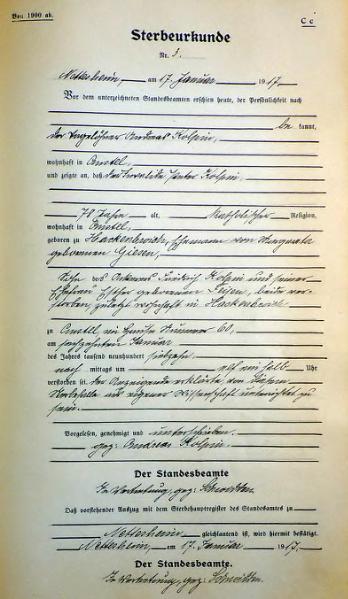 Von 1900 ab.
C c
Sterbeurkunde
Nr. 3.
Nettersheim, am 17. Januar 1917
Vor dem unterzeichneten Standesbeamten erschien heute, der Persönlichkeit nach
be kannt,
der Tagelöhner Andreas Kolpin,
wohnhaft in
und zeigte an, daß der Invalide, Peter Kolpin,
78 Jahre alt, Katholischer Religion,
wohnhaft in
geboren zu Ehemann von Margareta
geborenen Giesen,
Sohn des Kolpin und seiner
Ehefrau geborenen beide ver-
storben, zuletzt wohnhaft in
zu im Hause Nummer 60,
am Januar
des Jahres tausend neunhundert siebzehn
nach mittags um elf ein halb Uhr
verstorben sei. Der Anzeigende erklärte, von diesem
Sterbefalle aus eigener Wissenschaft unterrichtet zu
sein.
Vorgelesen, genehmigt und unterschrieben.
gez: Andreas Kolpin.
Der Standesbeamte
In Vertretung, gez:
Daß vorstehender Auszug mit dem Sterbehauptregister des Standesamts zu
Nettersheim gleichlautend ist, wird hiermit bestätigt.
Nettersheim, am 17. Januar 1917.
Der Standesbeamte.
In Vertretung, gez: